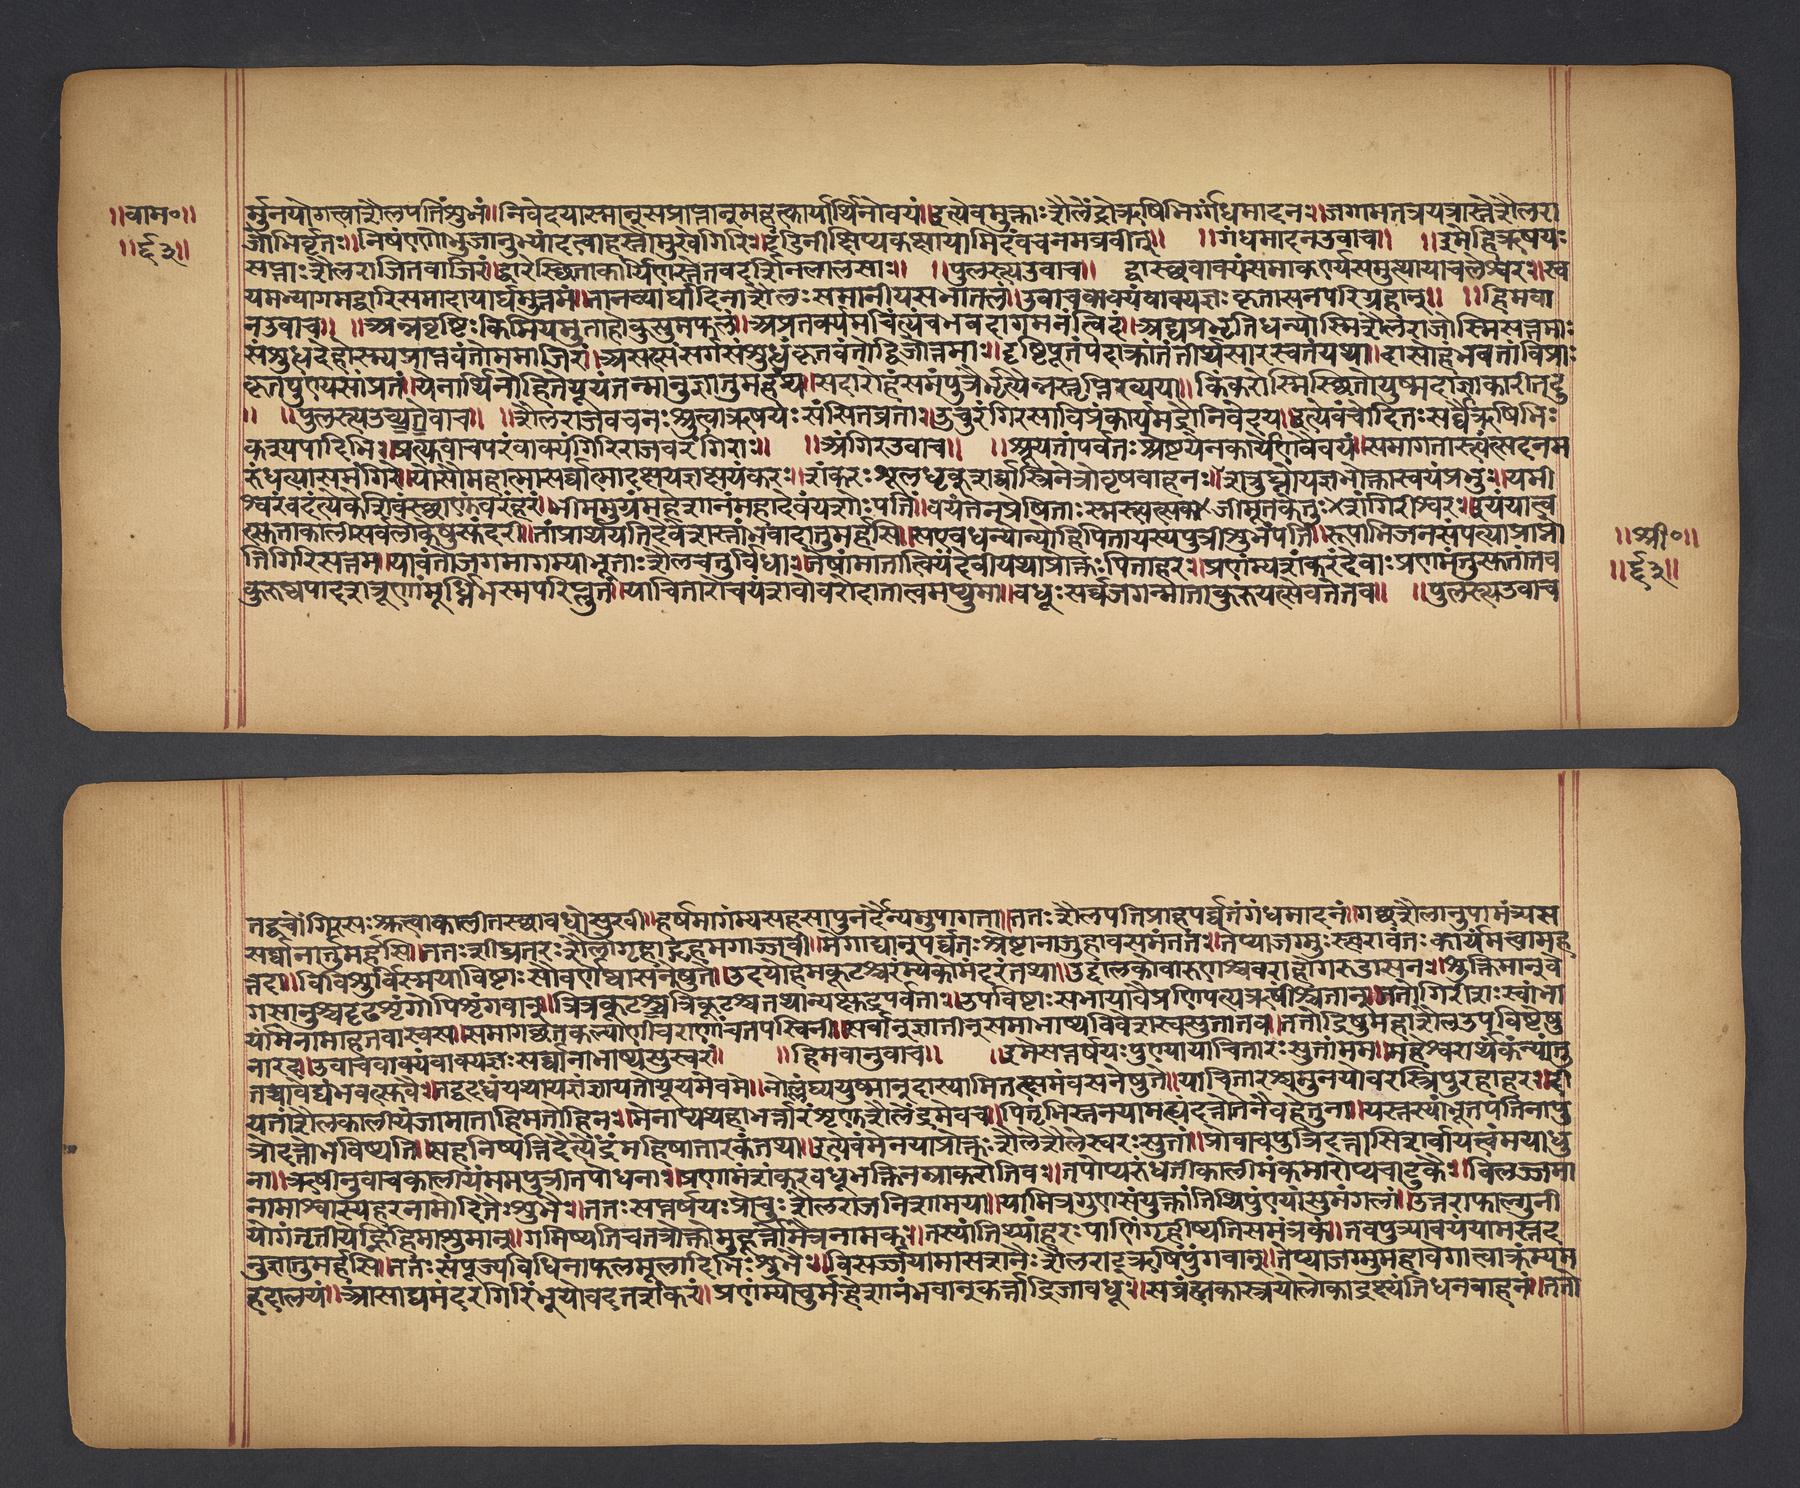 ॥वाम०॥
॥६३॥
र्मुनयोगत्वाशैलपतिंशुभं॥निवेदयास्मान्संप्राप्तान्महत्कार्यार्थिनोवयं॥इत्येवमुक्ताःशैलेंद्रोऋषिभिर्गंधमादनः॥जगामतत्रयत्रास्तेशैलरा
जोभिर्वृतः॥निषंणोभुजानुभ्यांदत्वाहस्तौमुखेगिरिः॥दंडंनीक्षिप्यकक्षायामिदंवचनमब्रवीत्॥ ॥गंधमादनउवाच॥ ॥इमेहिऋषयः
सप्ताःशैलराजितवाजिरं॥द्वारेस्थिताकार्यिणस्तेतवदर्शनलालसाः॥ ॥पुलस्त्यउवाच॥ द्वास्थवाक्यंसमाकर्ण्यसमुत्थायाचलेश्वरः॥स्व
यमभ्यागमद्वारिसमादायार्घमुत्तमं॥तानर्च्यार्घादिनाशैलःसमानीयसभातलं॥उवाचवाक्यंवाक्यज्ञःकृतासनपरिग्रहान्॥ ॥हिमवा
नउवाच॥ ॥अनभ्रवृष्टिःकिमियमुताहोकुसुमफलं॥अप्रतर्क्यमचिंत्यंचभवदागमनंत्विदं॥अद्यप्रभृतिधन्योस्मिशैलराजोस्मिसत्तमाः
संशुधदेहोस्म्यप्राप्तवंतोममाजिरं॥असत्संसर्गसंशुधंकृतवंतोद्विजोत्तमाः॥दृष्टिपूतंपदाक्रांतंतीर्थंसारस्वतंयथा॥दासोहंभवतांविप्राः
कृतपुण्यसांप्रतं॥येनार्थिनोहितेयूयंतन्मानुज्ञातुमर्हथ॥सदारोहंसमंपुत्रैर्भृत्यैनप्तृभिरव्यया॥किंकरोस्मिस्थितोयुष्मदाज्ञाकारीतदु
॥ ॥पुलस्त्यउच्यतेवाच॥ ॥शैलराजवचनःश्रुत्वाऋषयःसंसितव्रताः॥उचुरंगिरसांविप्रंकार्यमद्रौनिवेदय॥इत्येवंचोदितःसर्वैऋषिभिः
कश्यपादिभिः॥प्रत्युवाचपरंवाक्यंगिरिराजवरंगिराः॥ ॥अंगिरउवाच॥ ॥श्रूयतांपर्वतःश्रेष्टयेनकार्येणवैवयं॥समागतास्त्वत्सदनम
रुंधत्यासमंगिरे॥योसौमहात्मासर्वात्मादक्षयज्ञक्षयंकरः॥शंकरःशूलधृक्शर्वस्त्रिनेत्रोवृषवाहनः॥शत्रुघ्नोयज्ञभोक्तास्वयंप्रभुः॥यमी
श्वरंवदंत्येकेशिवंस्थाणुंभवंहरं॥भीममुग्रंमहेशानंमहादेवंयशोःपतिं॥वयंतेनप्रेषिताःस्मस्त्वत्सका
त्सुताकालीसर्वलोकेषुसुंदरी॥तांप्रार्थयतिदेवेशस्तांभवान्दातुमर्हसि॥सएवधन्योन्योहिपितायस्यपुत्रीशुभंपतिं॥रूपाभिजनसंपत्याप्राप्नो
तिगिरिसत्तम॥यावंतोजगमागम्याभूताःशैलचतुर्विधाः॥तेषांमातात्वियंदेवीयथाप्रोक्तःपिताहरः॥प्रणम्यशंकरंदेवाःप्रणमंतुसुतांतव
कुरुष्वपादशत्रूणांमूर्ध्निभस्मपरिप्लुतं॥याचितारोवयंशर्वोवरोदातात्वमप्युमा॥वधूःसर्वजगन्माताकुरुयत्श्रेयसेतव॥ ॥पुलस्त्यउवाच
॥श्री०॥
॥६३॥
तद्वचोंगिरसःश्रुत्वाकालीतस्थावधोमुखी॥हर्षमागम्यसहसापुनर्दैन्यमुपागता॥ततःशैलपतिप्राहपर्वतंगंधमादनं॥गच्छशैलानुपामंत्र्यस
सर्वानागंतुमर्हसि॥ततःशीघ्रतरःशैलोगृहाद्गेहमगाज्जवी॥मेर्वाद्यान्पर्वतःश्रेष्टानाजुहावसमंततः॥तेप्याजग्मुःस्त्वरावंतःकार्यंमत्वामह
त्तदा॥विविशुर्विस्मयाविष्टाःसौवर्णेष्वासनेषुते॥उदयोहेमकूटश्चरम्यकोमंदरंतथा॥उद्दालकोवारुणश्चवराहोगरुडासनः॥शुक्तिमान्वे
गसानुश्चदृढश्रृंगोपिशृंगवान्॥चित्रकूटश्चत्रिकूटश्चतथान्यक्षुद्रपर्वताः॥उपविष्टाःसभायांवैप्रणिपत्यऋषींश्चतान्॥ततोगिरीशःस्वांभा
र्यांमेनामाहूतवांस्वसा॥समागच्छतकल्याणीचराणांचतपस्विनी॥सर्वानुज्ञातीन्समाभाष्यविवेशस्वसुतातव॥ततोद्रिषुमहाशैलउपविष्टेषु
नारद॥उवाचवाक्यंवाक्यज्ञःसर्वानाभाष्यसुस्वरं॥ ॥हिमवानुवाच॥ ॥इमेसप्तर्षयःपुण्यायाचितारःसुतांमम॥महेश्वरार्थंकंन्यांतु
तच्चावेद्यंभवत्सुवै॥तद्वदध्वंयथाप्रज्ञंज्ञायतोयूयमेवमे॥नोल्लंघ्ययुष्मान्दास्यामितत्क्षमंवसनेषुते॥याचितारश्चमुनयोवरस्त्रिपुरहाहरः॥दी
यतांशैलकालीयंजामाताहिमतोहिनः॥मेनाप्यथहाभर्त्तारंशृणुशैलेंद्रमेवच॥पितृभिस्तनयामत्यंदत्तातेनैवहेतुना॥यस्तस्यांभूतपतिनापु
त्रोदत्तोभविष्यति॥सहनिष्यंतिदैत्येंद्रंमहिषातारकंतथा॥इत्येवंमेनयाप्रोक्तःशैलशैलेस्वरःसुतां॥प्रोवाचपुत्रिदत्तासिशर्वायत्वंमयाधु
ना॥ऋषीनुवाचकालीयंममपुत्रीतपोधनाः॥प्रणामंशंकरवधूभक्तिनम्राकरोतिवः॥तपोप्यरुंधतीकालीमंकमारोप्यचादुकैः॥विलज्जमा
नामाश्वास्यहरनामोदितैःशुभैः॥ततःसप्तर्षयःप्रोचुःशैलराजनिशामया॥यामित्रगुणसंयुक्तांतिथिंपुण्यांसुमंगलां॥उत्तराफाल्गुनी
योगंतृतीयेह्निहिमांशुमान्॥गमिष्यतिचतत्रोक्तोमुहूर्त्तोमैत्रनामकः॥तस्यांतिथ्यांहरःपाणिंगृहीष्यतिसमंत्रकं॥तवपुत्र्यावयंयामस्तद
नुज्ञातुमर्हसि॥ततःसंपूज्यविधिनाफलमूलादिभिःशुभैः॥विसर्ज्जयामासशनैःशैलराट्ऋषिपुंगवान्॥तेप्याजग्मुमहावेगात्वाक्रंम्यम
हदालयं॥आसाद्यमंदरगिरिंभूयोवदतशंकरं॥प्रणम्योचुर्महेशानंभवान्भर्त्ताद्रिजावधूः॥सब्रह्मकास्त्रयोलोकाद्रक्ष्यंतिधनवाहनं॥ततो